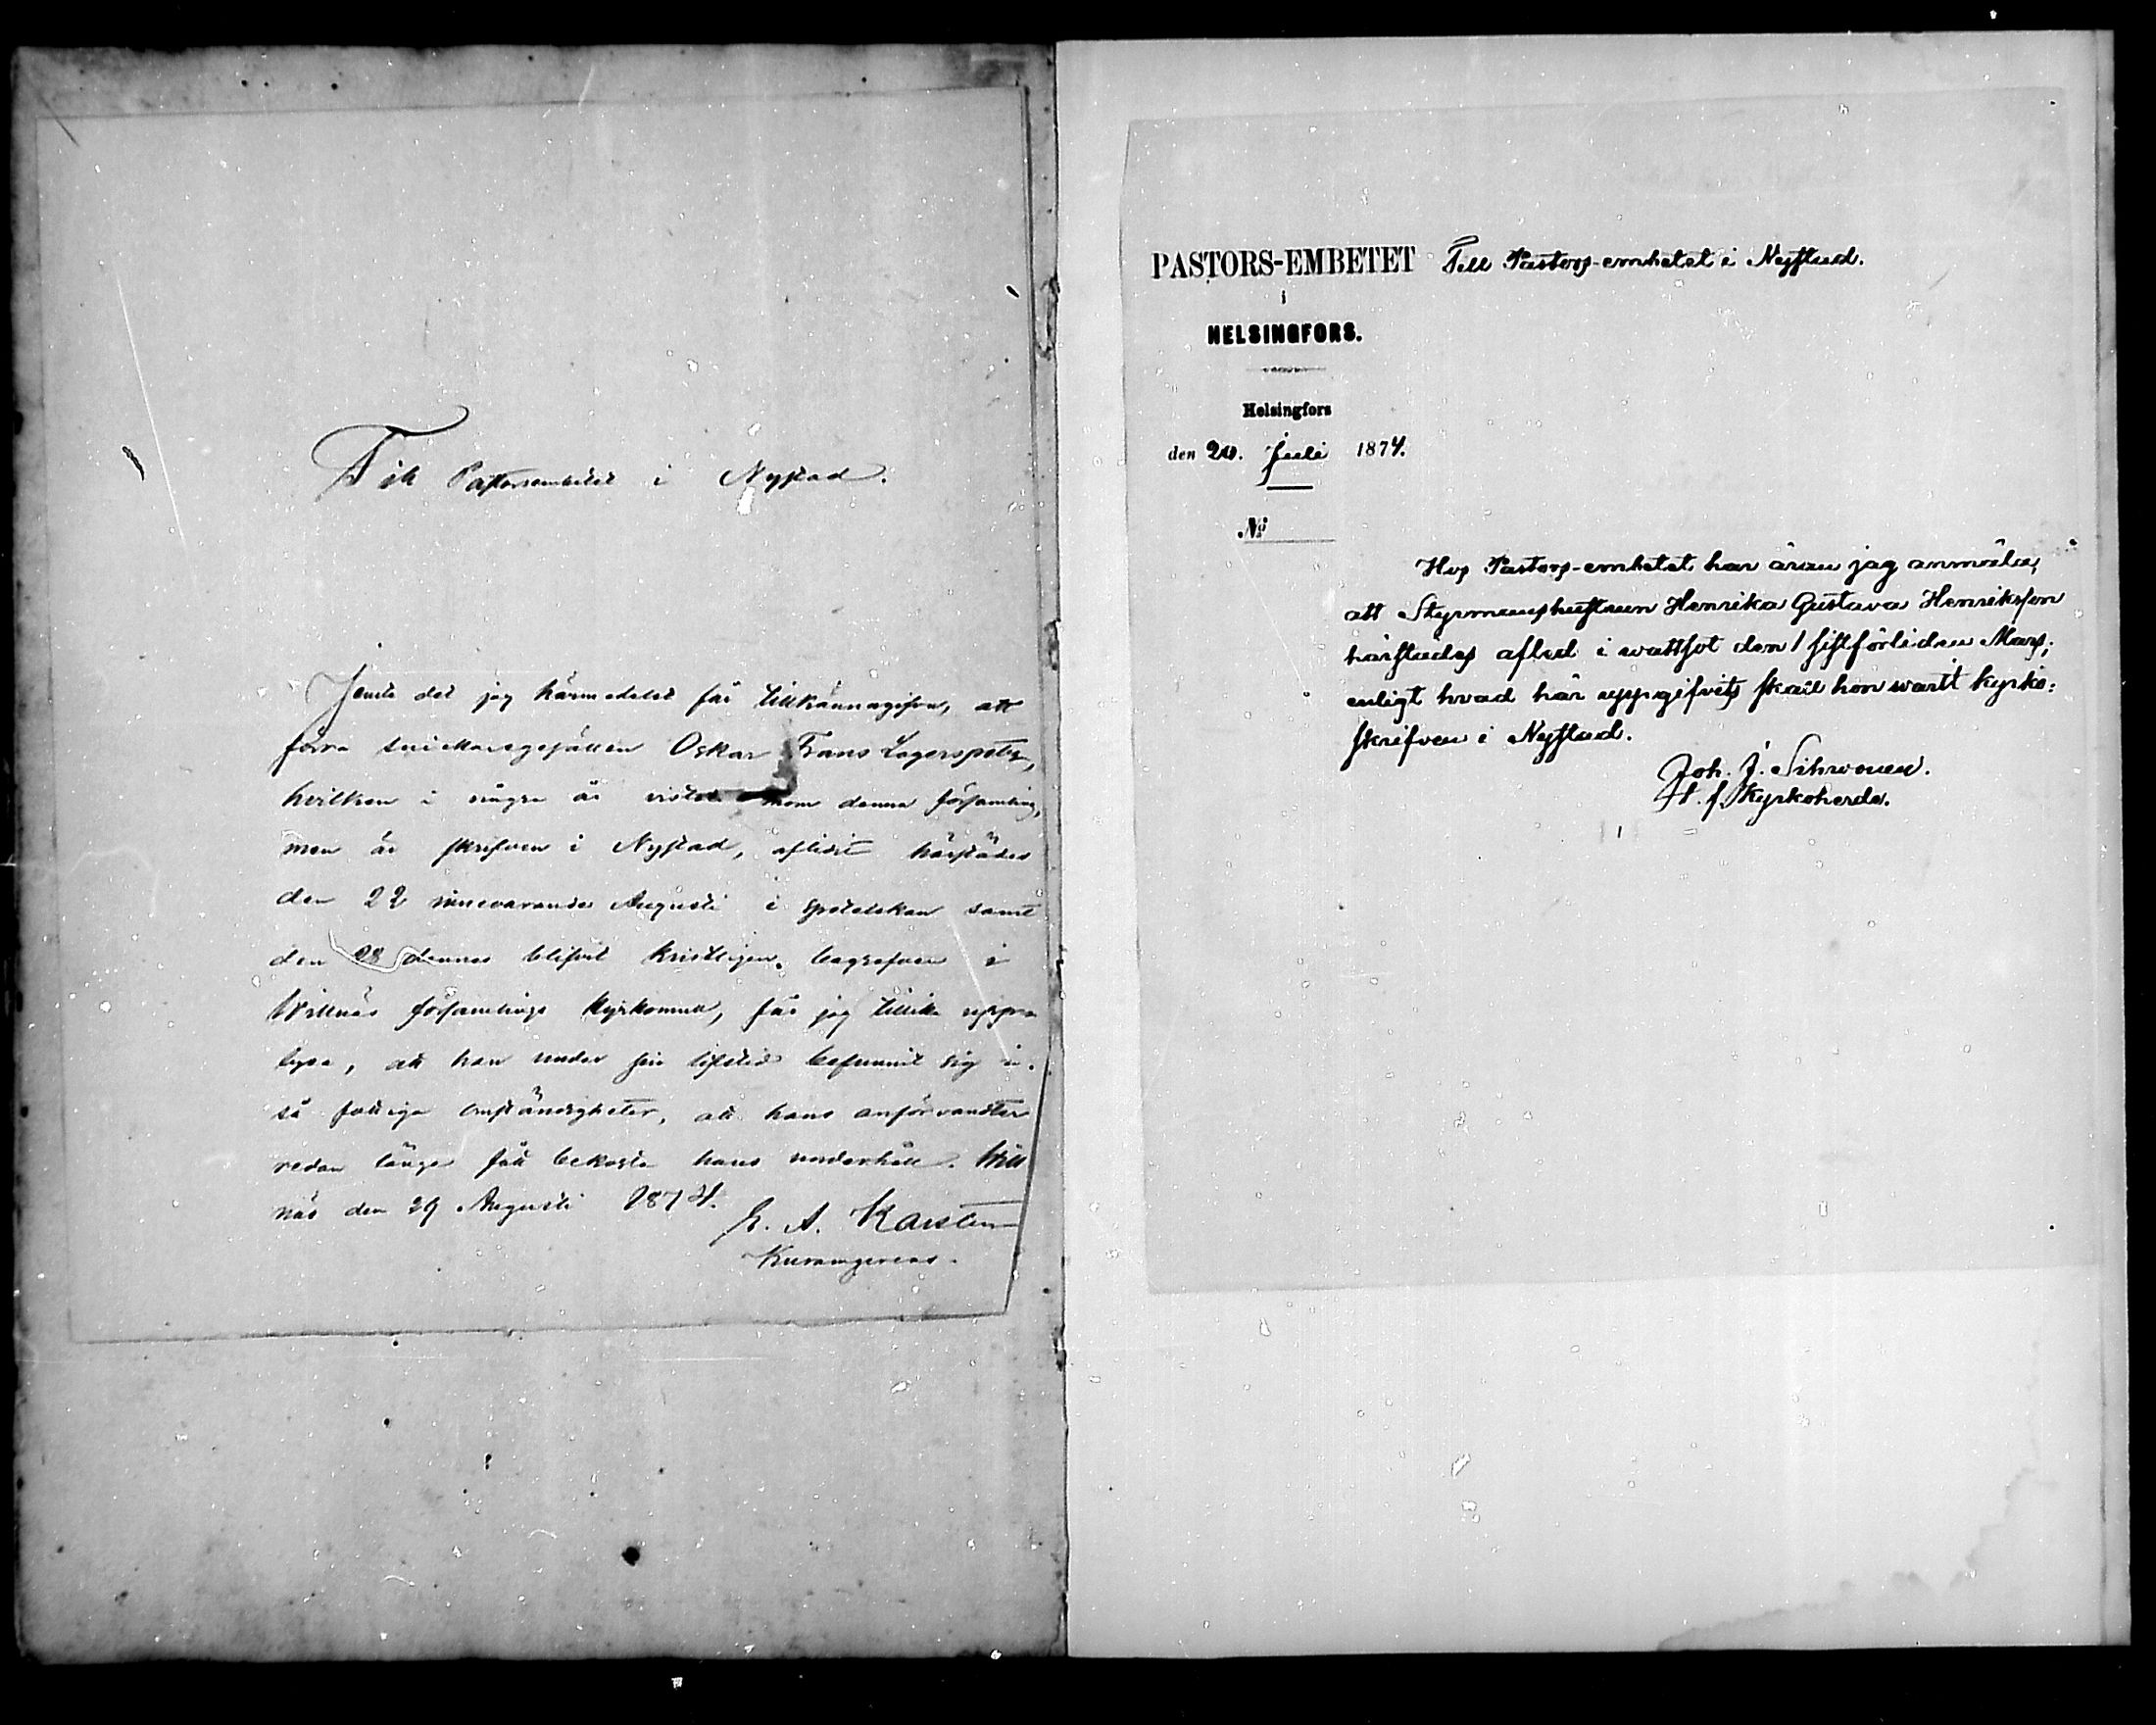 Till Pastorsembetet i Nystad.
Jemte det jag härmedelst får tillkännagifva, att
förra snickaregesällen Oskar Frans Lagerspetz,
hvilken i några år vistats inom denna församling,
men är skrifven i Nystad, aflidit härstädes
den 22 innevarande Augusti i spetelskan samt
den 28 dennes blifvit kristligen begrafven i
Willnäs församlings kyrkomull, får jag tillika upp-
lysa, att han under sin lifstid befunnit sig i
så fattiga omständigheter, att hans anförvandter
redan länge fått bekosta hans underhåll. Will
näs den 29 Augusti 1874.
A. Karsten
PASTORS-EMBETET Till Pastors-embetet i Nystad.
i
HELSINGFORS.
Helsingfors
den Juli 1874.
No
Hos Pastors-embetet har äran jag anmäla,
att Styrmanshustrun Henrika Gustava Henriksson
härstädes afled i wattsot den 1 sistförliden Mars;
enligt hvad här uppgifvits skall hon warit kyrko-
skrifven i Nystad.
Joh. J. Sihwonen.
t. f. Kyrkoherde.